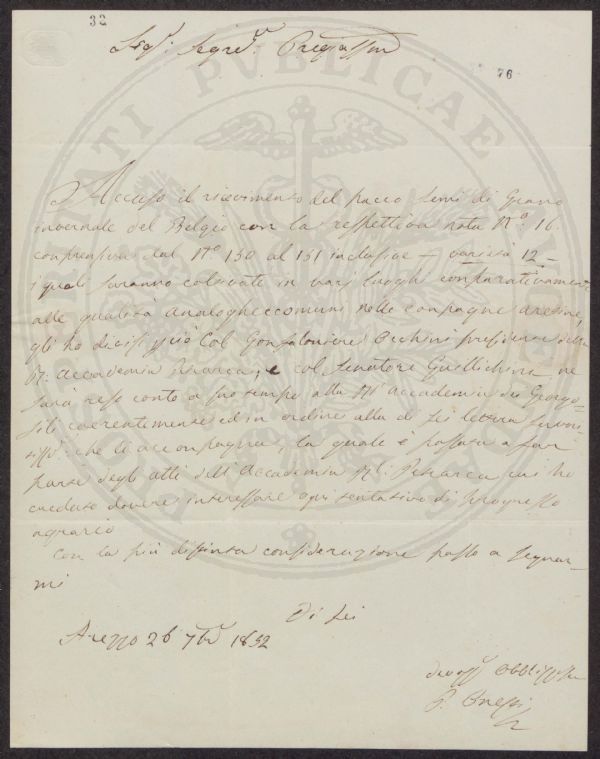 32
76
Sigr. Segreo. Pregiatssmo
Accuso il ricevimento del pacco semi di Grano
invernale del Belgio con la respettiva nota N.o 16.
comprensiva dal N.o 130 al 151 inclusive — varietà 12 —
i quali saranno coltivati in vari luoghi comparativamente
alle qualità analoghe comuni nelle campagne aretine,
gli ho divisi già col Gonfaloniere Occhini presidente della
R. Accademia Petrarca, e col Senatore Guillichini ne
sarà reso conto a suo tempo alla R. Accademia dei Georgo-
fili coerentemente ed in ordine alla di lei lettera
che li accompagna, la quale è passata a far
parte degli atti dell'Accademia Petrarca cui ho
creduto dovere interessare ogni tentativo di progresso
agrario
Con la più distinta considerazione passo a segnar-
mi
Di Lei
Arezzo 26 7bre 1852
SOCIETAS PUBLICAE